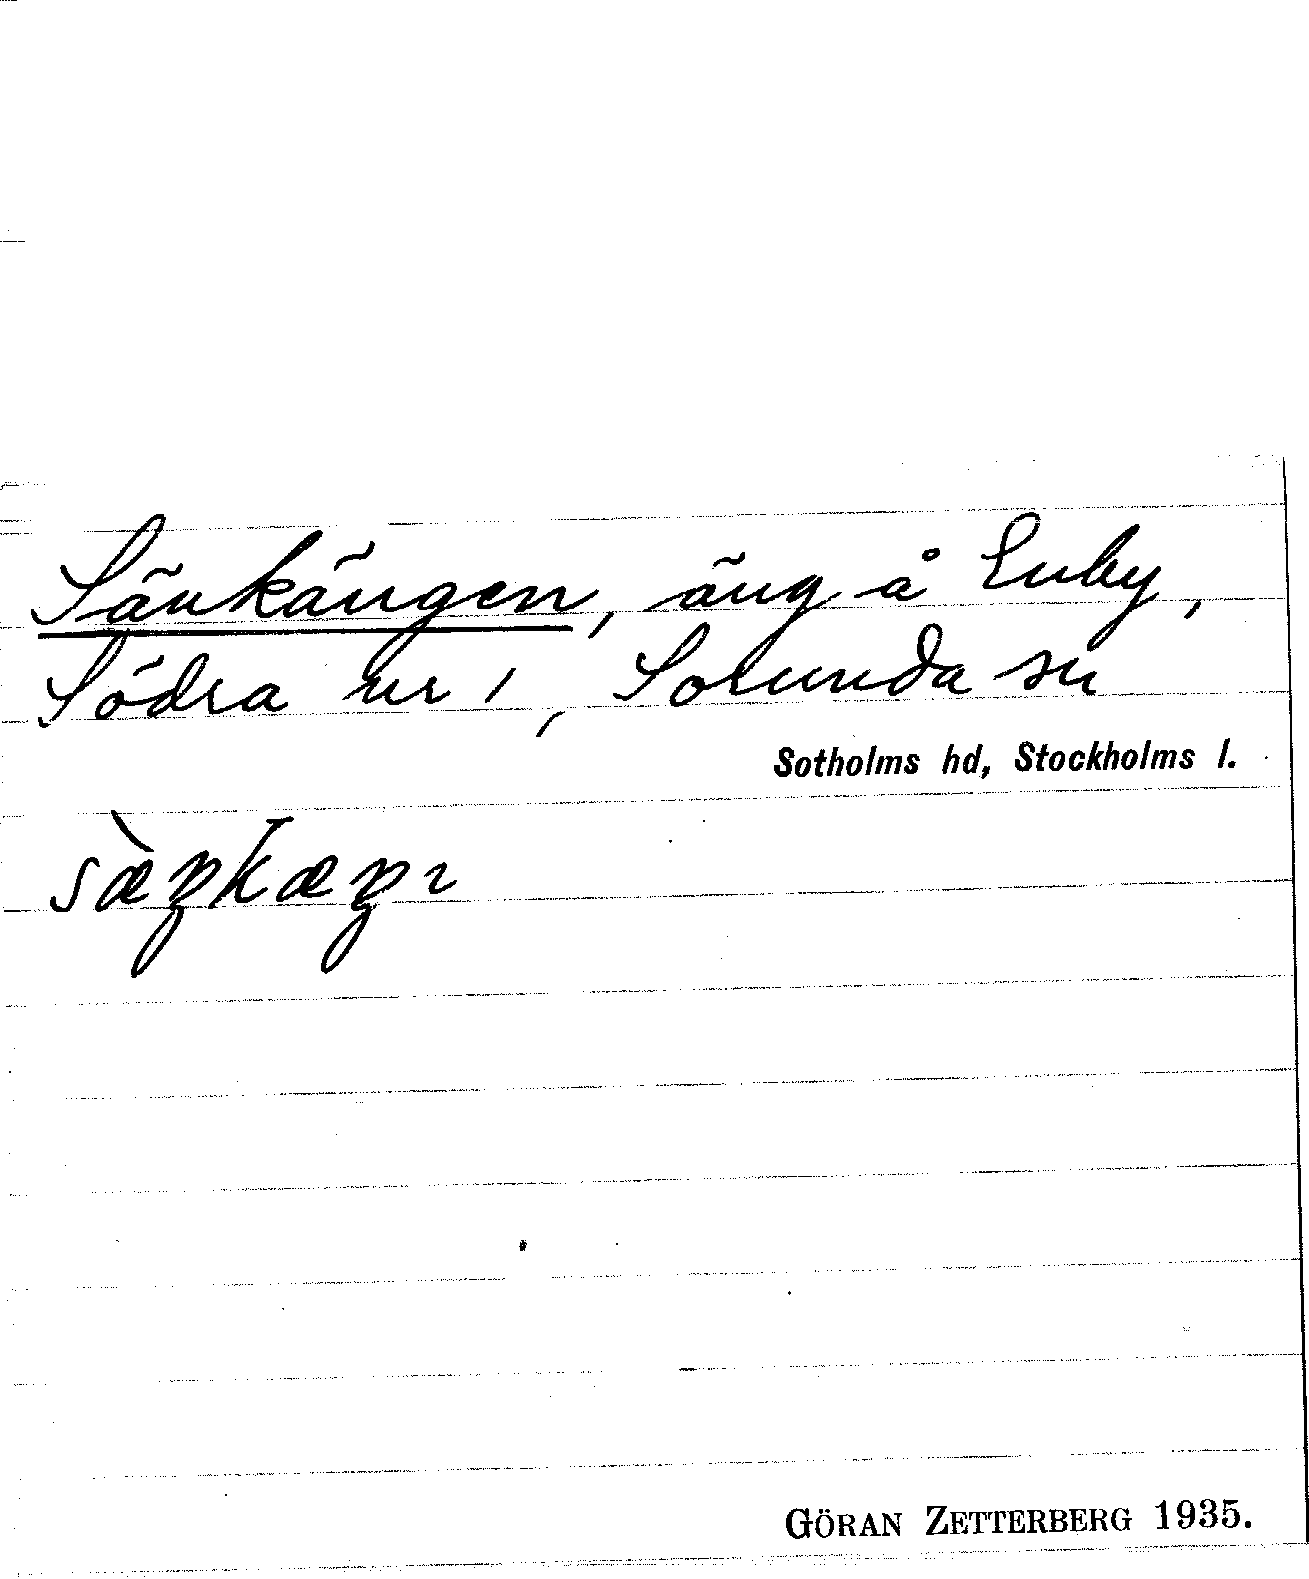 Sänkängen, äng å Enby,
Södra nr 1, Sorunda sn
Sotholms hd, Stockholms l.
GÖRAN ZETTERBERG 1935.